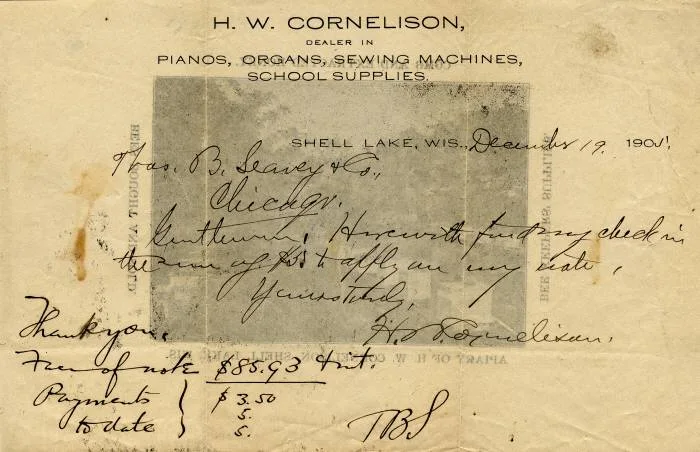 H. W. CORNELISON,
DEALER IN
PIANOS, ORGANS, SEWING MACHINES,
SCHOOL SUPPLIES.
SHELL LAKE, WIS., December 19, 190
Thos. B. Seavey & Co.,
Chicago.
Gentlemen, Herewith find my check in
the sum of $5 to apply on my note,
Yours truly,
H. W. Cornelison.
Thank you.
Face of note $85.93 + int.
Payments
to date
$3.50
5.
5.
TBS
BEES BOUGHT AND SOLD
BEE KEEPERS SUPPLIES
APIARY OF H. W. CORNELISON, SHELL LAKE, WIS.